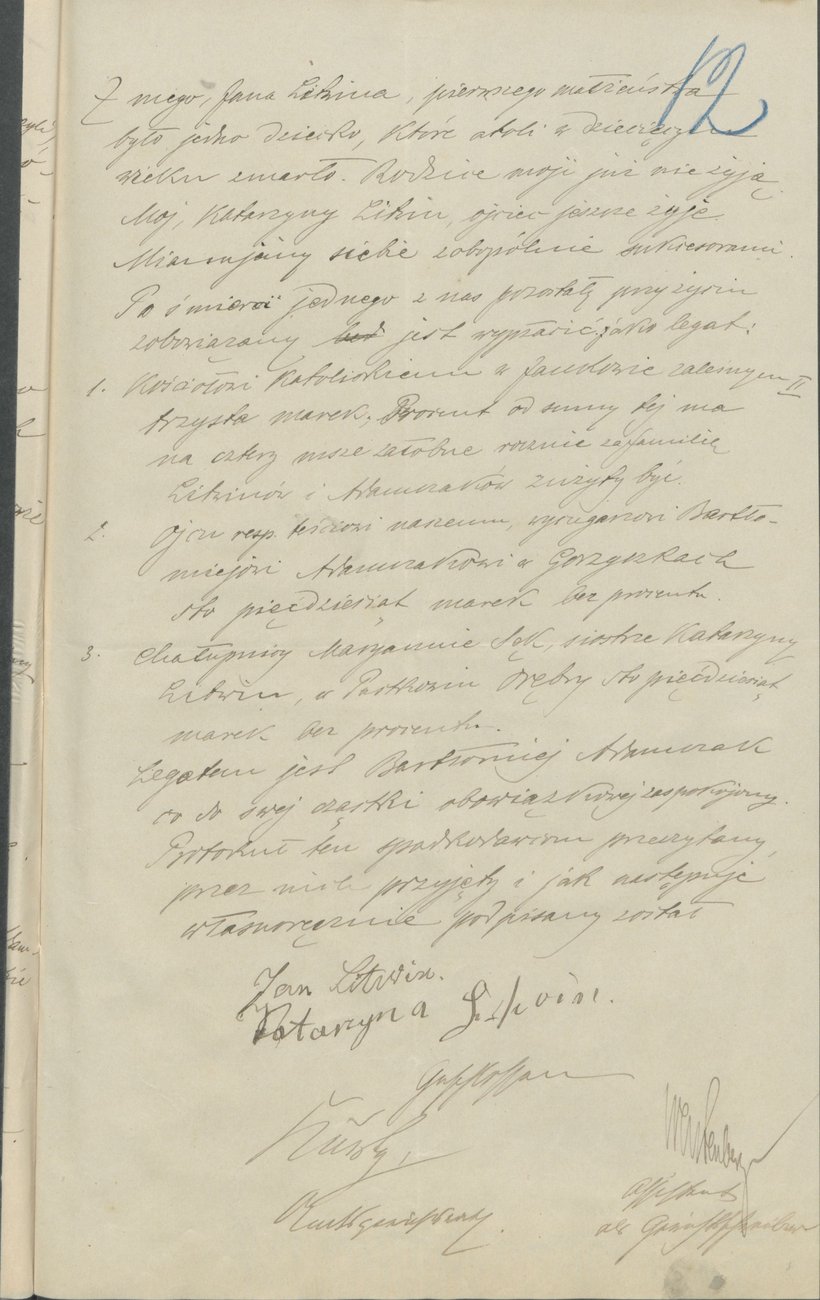 12
Z mego, Jana Litwina, pierwszego małżeństwa
było jedno dziecko, które atoli w dziecięcym
wieku zmarło. Rodzice moji już nie żyją.
Moj, Katarzyny Litwin, ojciec jeszcze żyje.
Mianujemy siebie zobopólnie sukcesorami.
Po śmierci jednego z nas pozostały przy życiu
zobowiązany jest wypłacić jako legat:
1. Kościołowi Katolickiemu w Zalesiu II
trzysta marek. Procent od sumy tej ma
na cztery msze żałobne rocznie za familię
Litwinów i Adamczaków zużyty być.
2. Ojcu resp. teściowi naszemu, wycugarzowi Bartło-
miejowi Adamczakowi w Gorzyczkach
sto pięćdziesiąt marek bez procentu.
3. Chałupnicy Maryannie Sęk, siostrze Katarzyny
Litwin, w sto pięćdziesiąt
marek bez procentu.
Legatem jest Bartłomiej Adamczak
co do swej cząstki obowiązkowej zaspokojony.
Protokuł ten spadkodawcom przeczytany,
przez nich przyjęty i jak następuje
własnoręcznie podpisany został
Jan Litwin.
Katarzyna Litwin.
Assistent
als Gerichtsschreiber